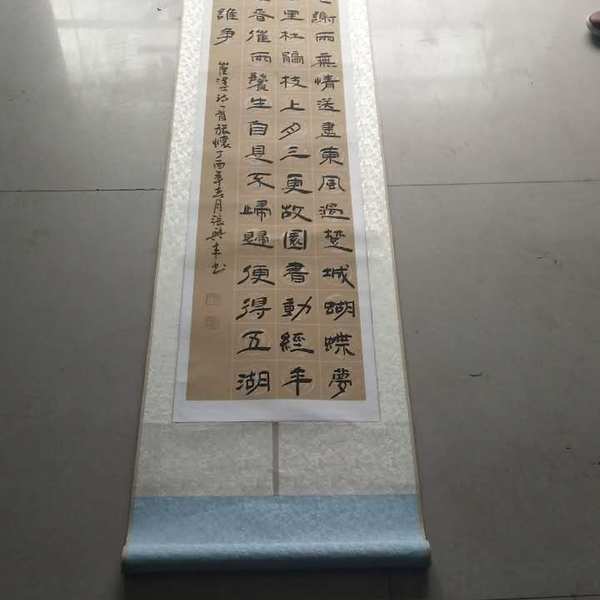 謝兩無情送盡東風過楚城蝴蝶夢
里杜鵑枝上月三更故園書動經年
春催兩鬢生自是不歸歸便得五湖
誰爭
詩一首旅懷丁酉年